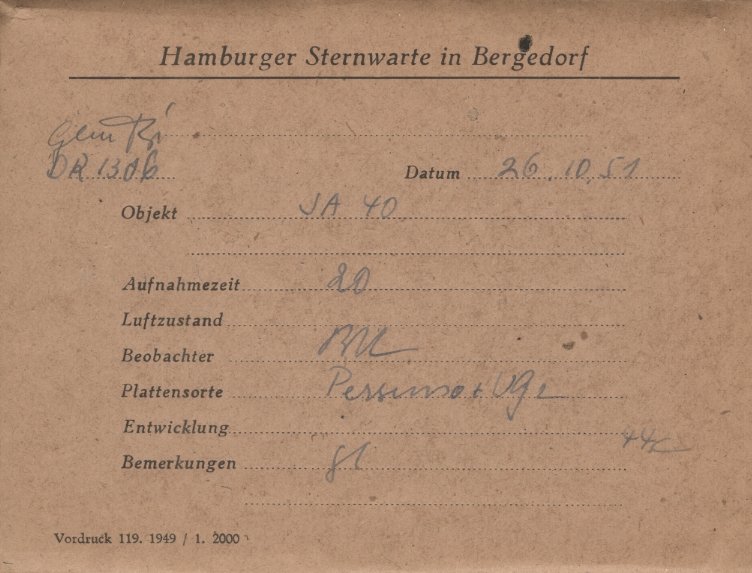 Hamburger Sternwarte in Bergedorf
DR 1306
Datum 26.10.51
Objekt SA 40
Aufnahmezeit 20
Luftzustand
Beobachter
Plattensorte
Entwicklung
Bemerkungen
Vordruck 119. 1949 / 1. 2000